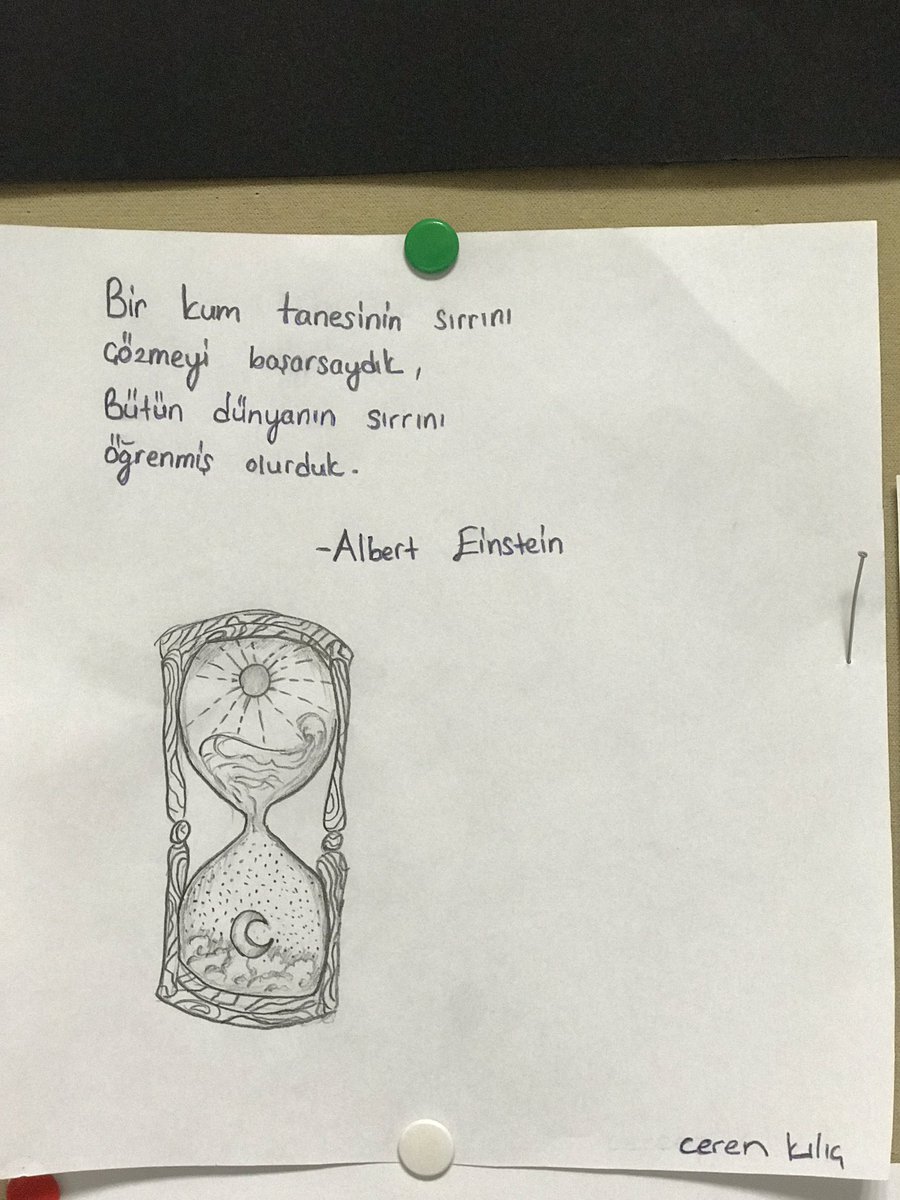 Bir kum tanesinin sırrını
çözmeyi başarsaydık,
Bütün dünyanın sırrını
öğrenmiş olurduk.
-Albert Einstein
ceren kılıç